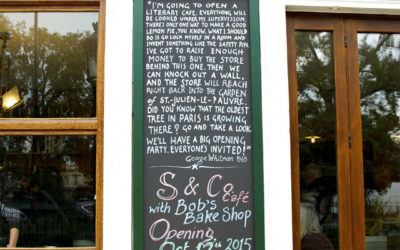 "I'M GOING TO OPEN A
LITERARY CAFE. EVERYTHING WILL
BE COOKED UNDER MY SUPERVISION.
THERE'S ONLY ONE WAY TO MAKE A GOOD
LEMON PIE. YOU KNOW, WHAT I SHOULD
DO IS GO LOCK MYSELF IN A ROOM AND
INVENT SOMETHING LIKE THE SAFETY PIN.
I'VE GOT TO RAISE ENOUGH
MONEY TO BUY THE STORE
BEHIND THIS ONE. THEN WE
CAN KNOCK OUT A WALL,
AND THE STORE WILL REACH
RIGHT BACK INTO THE GARDEN
OF ST.-JULIEN-LE-PAUVRE.
DID YOU KNOW THAT THE OLDEST
TREE IN PARIS IS GROWING
THERE? GO AND TAKE A LOOK.
WE'LL HAVE A BIG OPENING
PARTY. EVERYONE'S INVITED!"
George Whitman 1969
S & Co Café
with Bob's
Bake Shop
Opening
Oct 2015